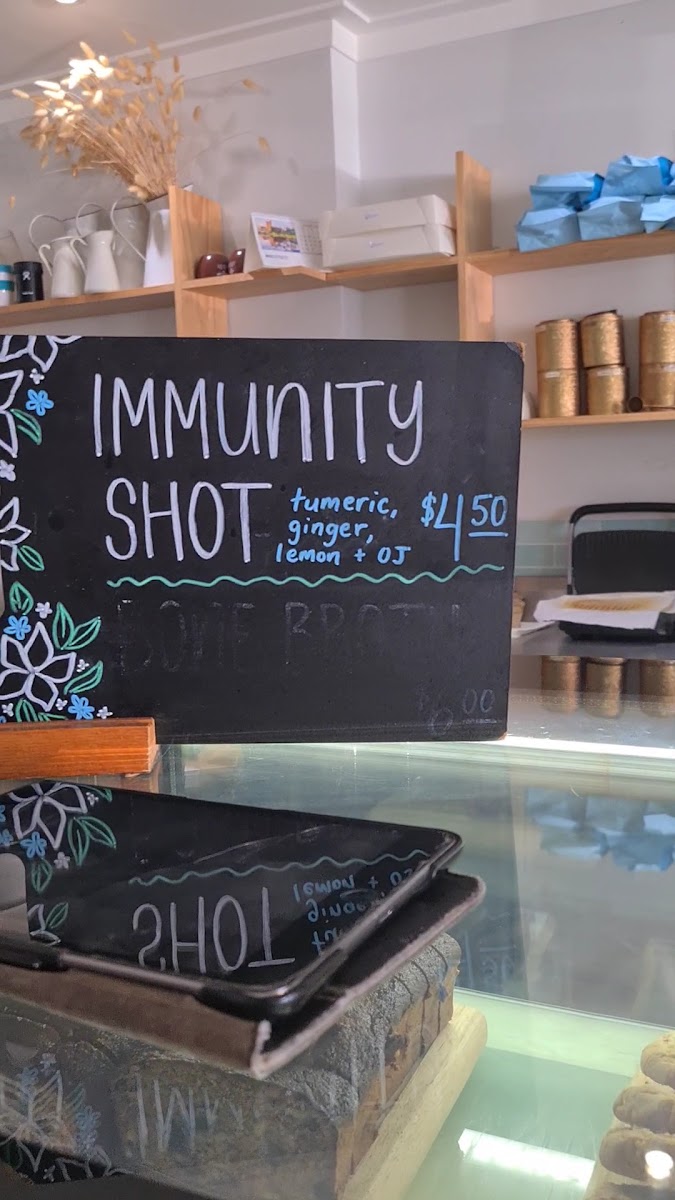 IMMUNITY
SHOT
tumeric,
ginger,
lemon + OJ
$4.50
BONE BROTH
$6.00